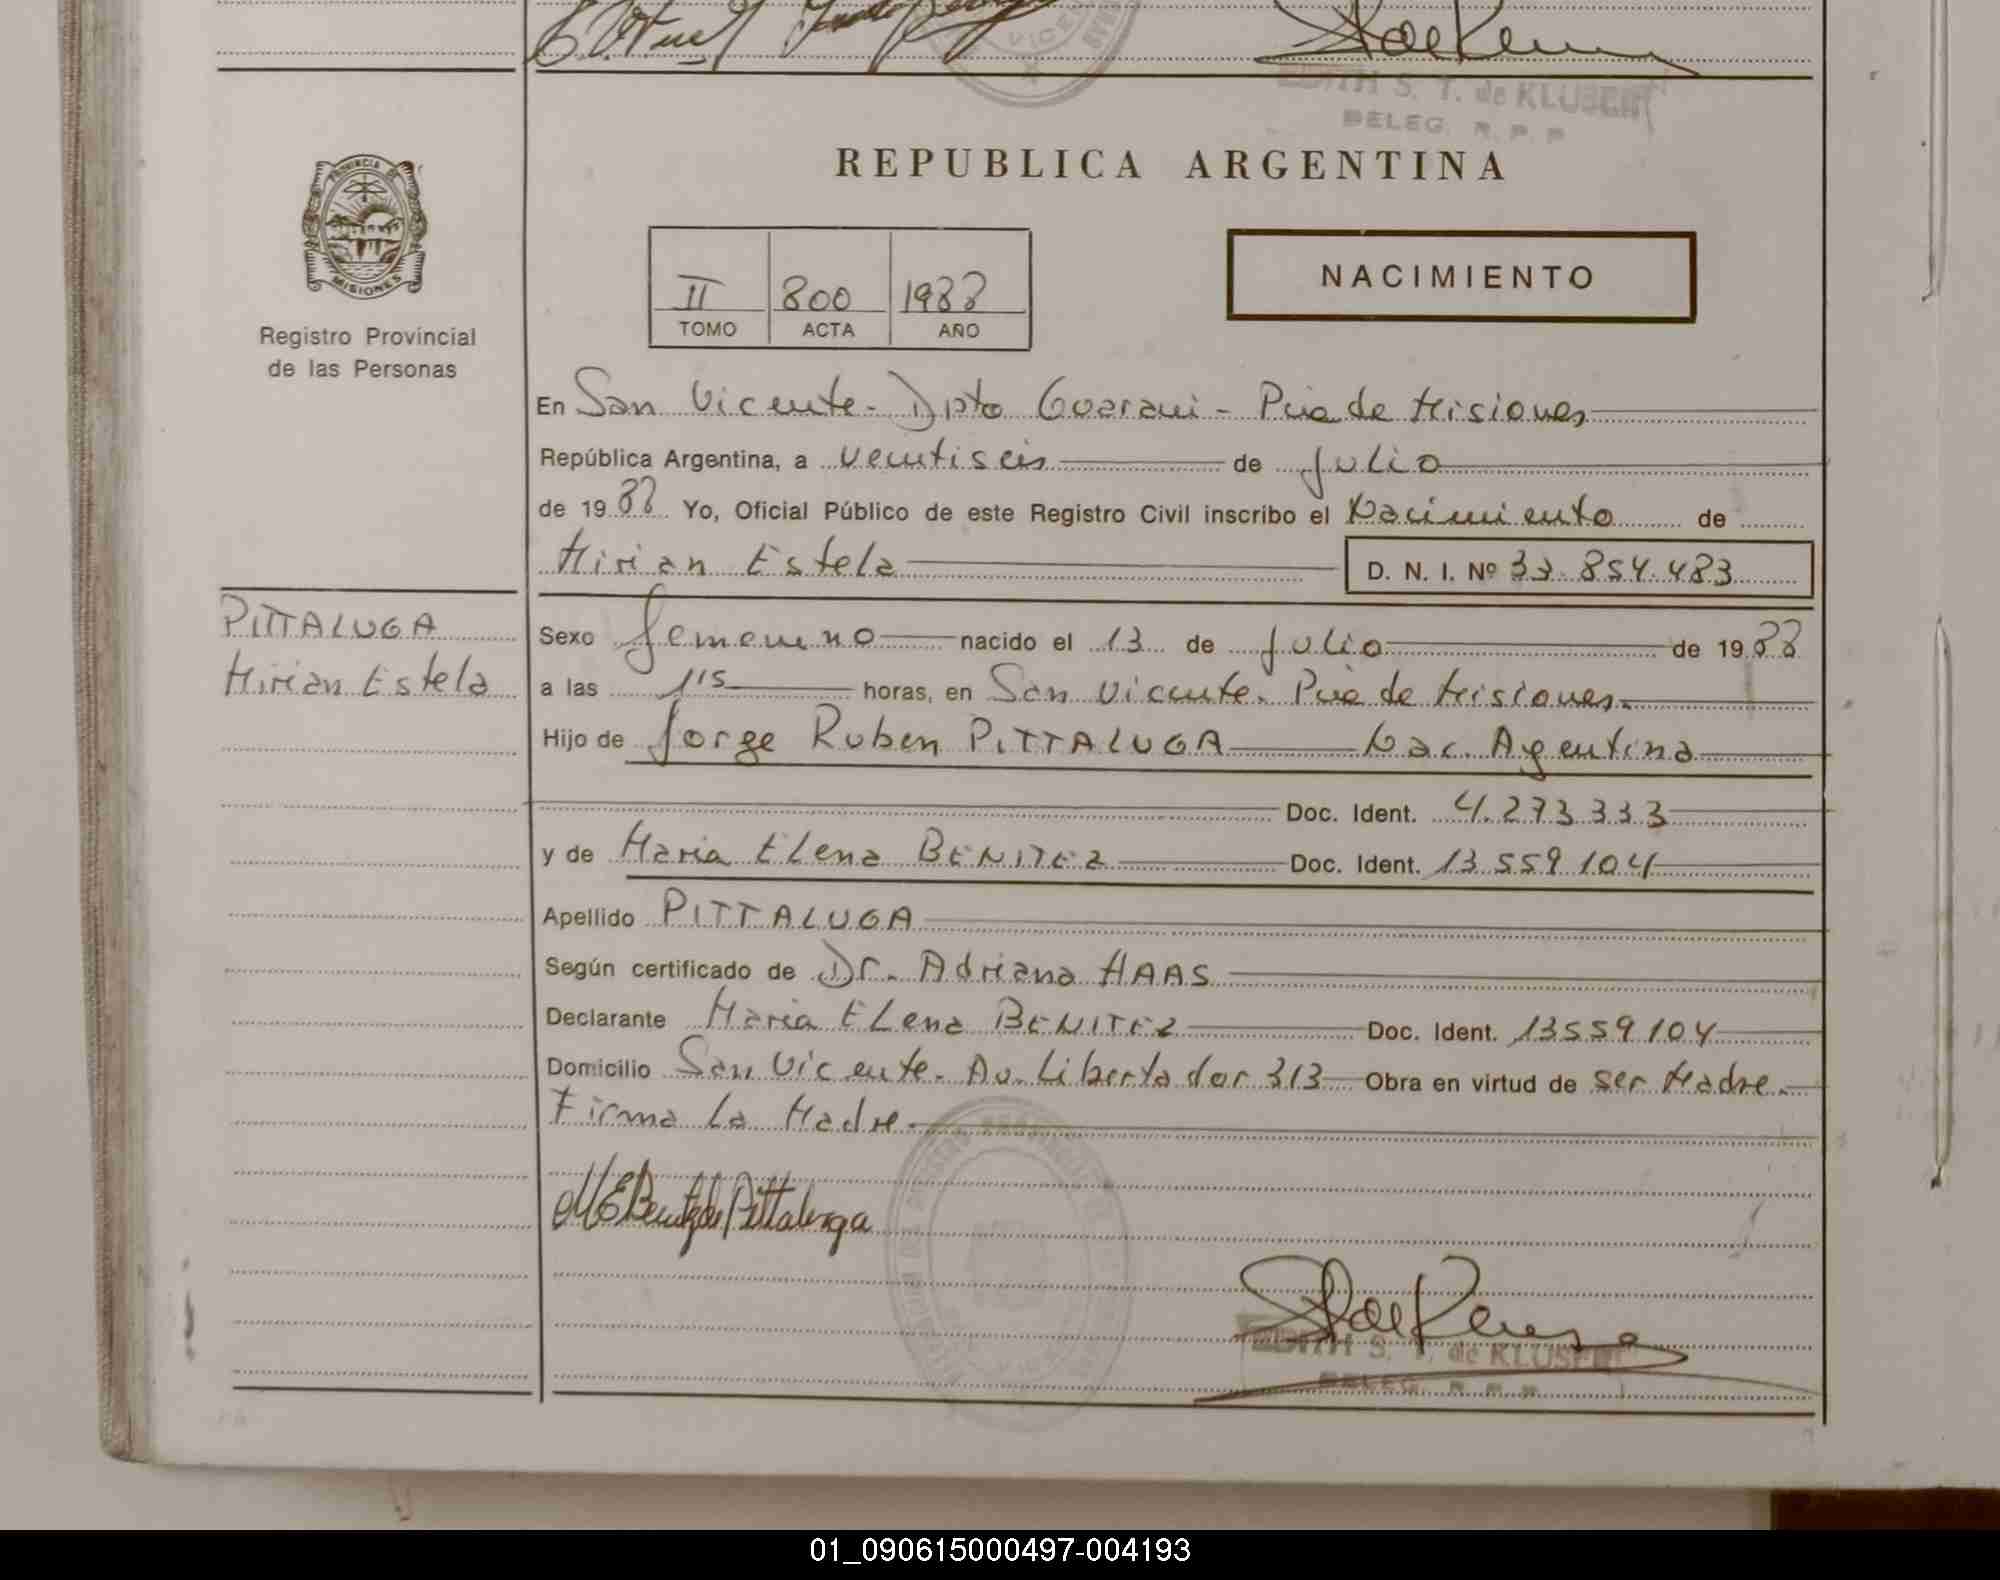 EDITH S. T. de KLUSENER
DELEG. R. P. P.
REPUBLICA ARGENTINA
PROVINCIA DE
MISIONES
Registro Provincial
de las Personas
II 800 1988
TOMO ACTA AÑO
NACIMIENTO
En San Vicente - Dpto Guarani - Pcia de Misiones
República Argentina, a veintiseis de Julio
de 1988 Yo, Oficial Público de este Registro Civil inscribo el Nacimiento de
Mirian Estela D. N. I. Nº 33.854.483
PITTALUGA
Mirian Estela
Sexo femenino nacido el 13 de Julio de 1988
a las 1'15 horas, en San Vicente. Pcia de Misiones.
Hijo de Jorge Ruben PITTALUGA Nac. Agentina
Doc. Ident. 4.273333
y de Maria Elena BENITEZ Doc. Ident. 13.559104
Apellido PITTALUGA
Según certificado de Dr. Adriana HAAS
Declarante Maria Elena BENITEZ Doc. Ident. 13559104
Domicilio San Vicente. Av. Libertador 313 Obra en virtud de ser Madre.
Firma La Madre.
M E Benitez de Pittaluga
EDITH S. T. de KLUSENER
DELEG. R. P. P.
01_090615000497-004193